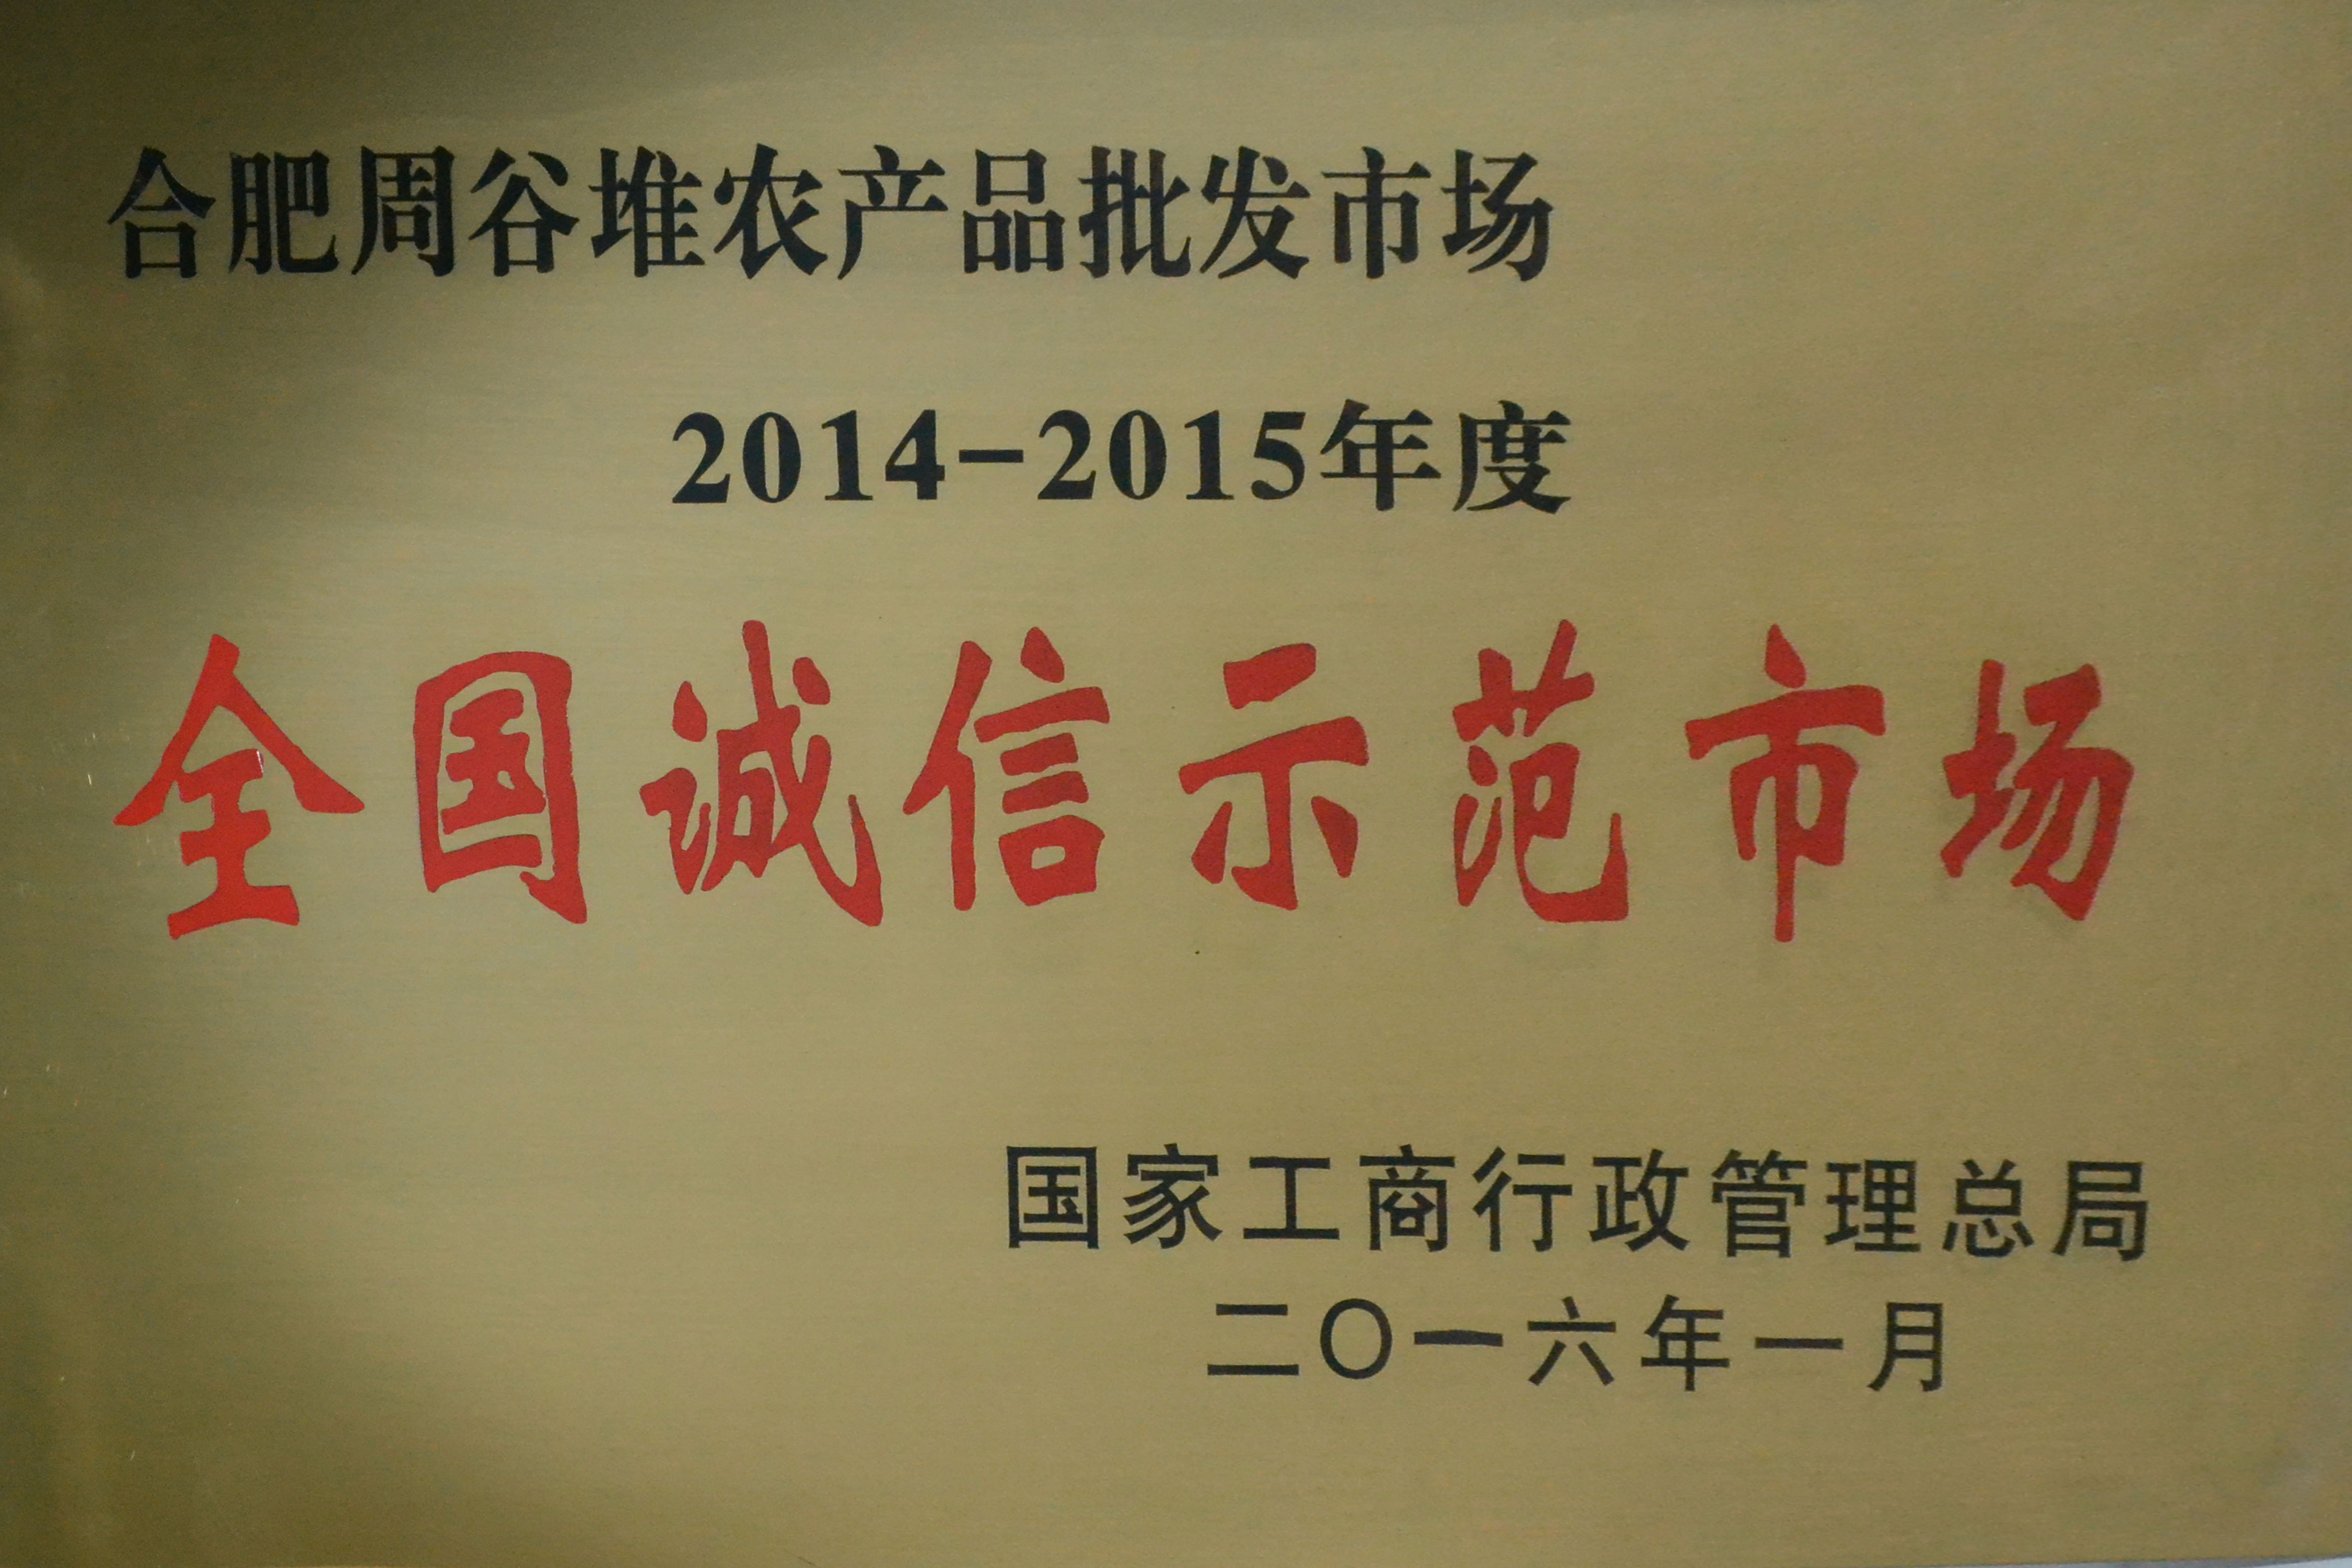 合肥周谷堆农产品批发市场
2014-2015年度
全国诚信示范市场
国家工商行政管理总局
二〇一六年一月